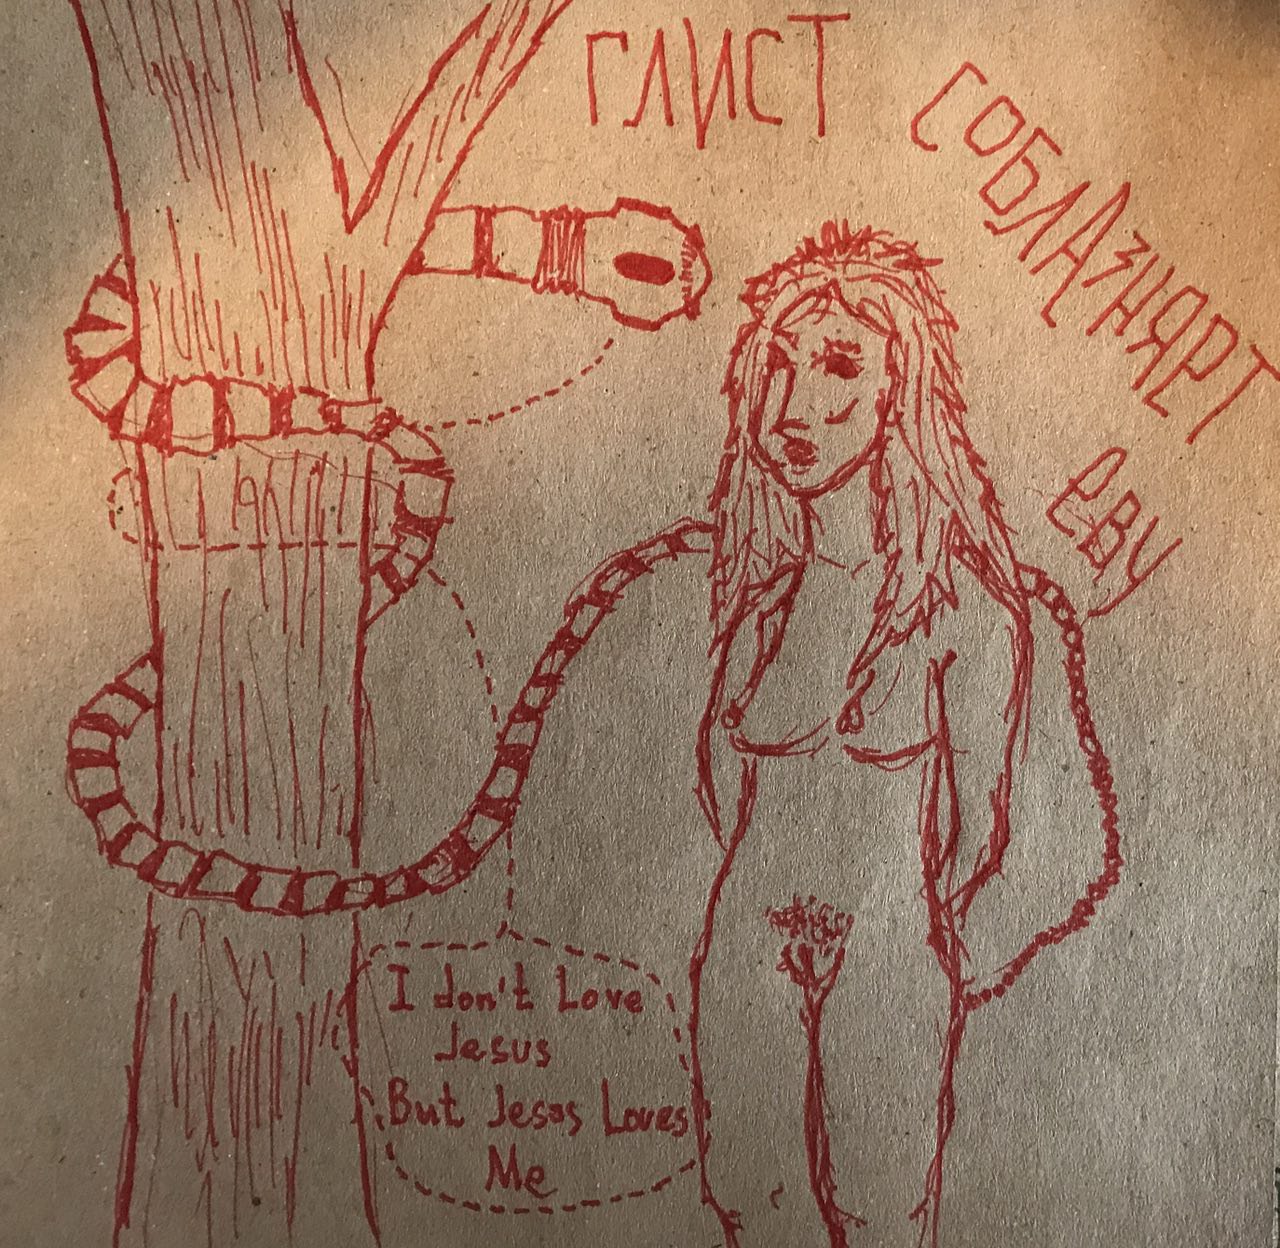 ГЛИСТ
СОБЛАЗНЯЕТ
ЕВУ
I don't Love
Jesus
But Jesus Loves
Me